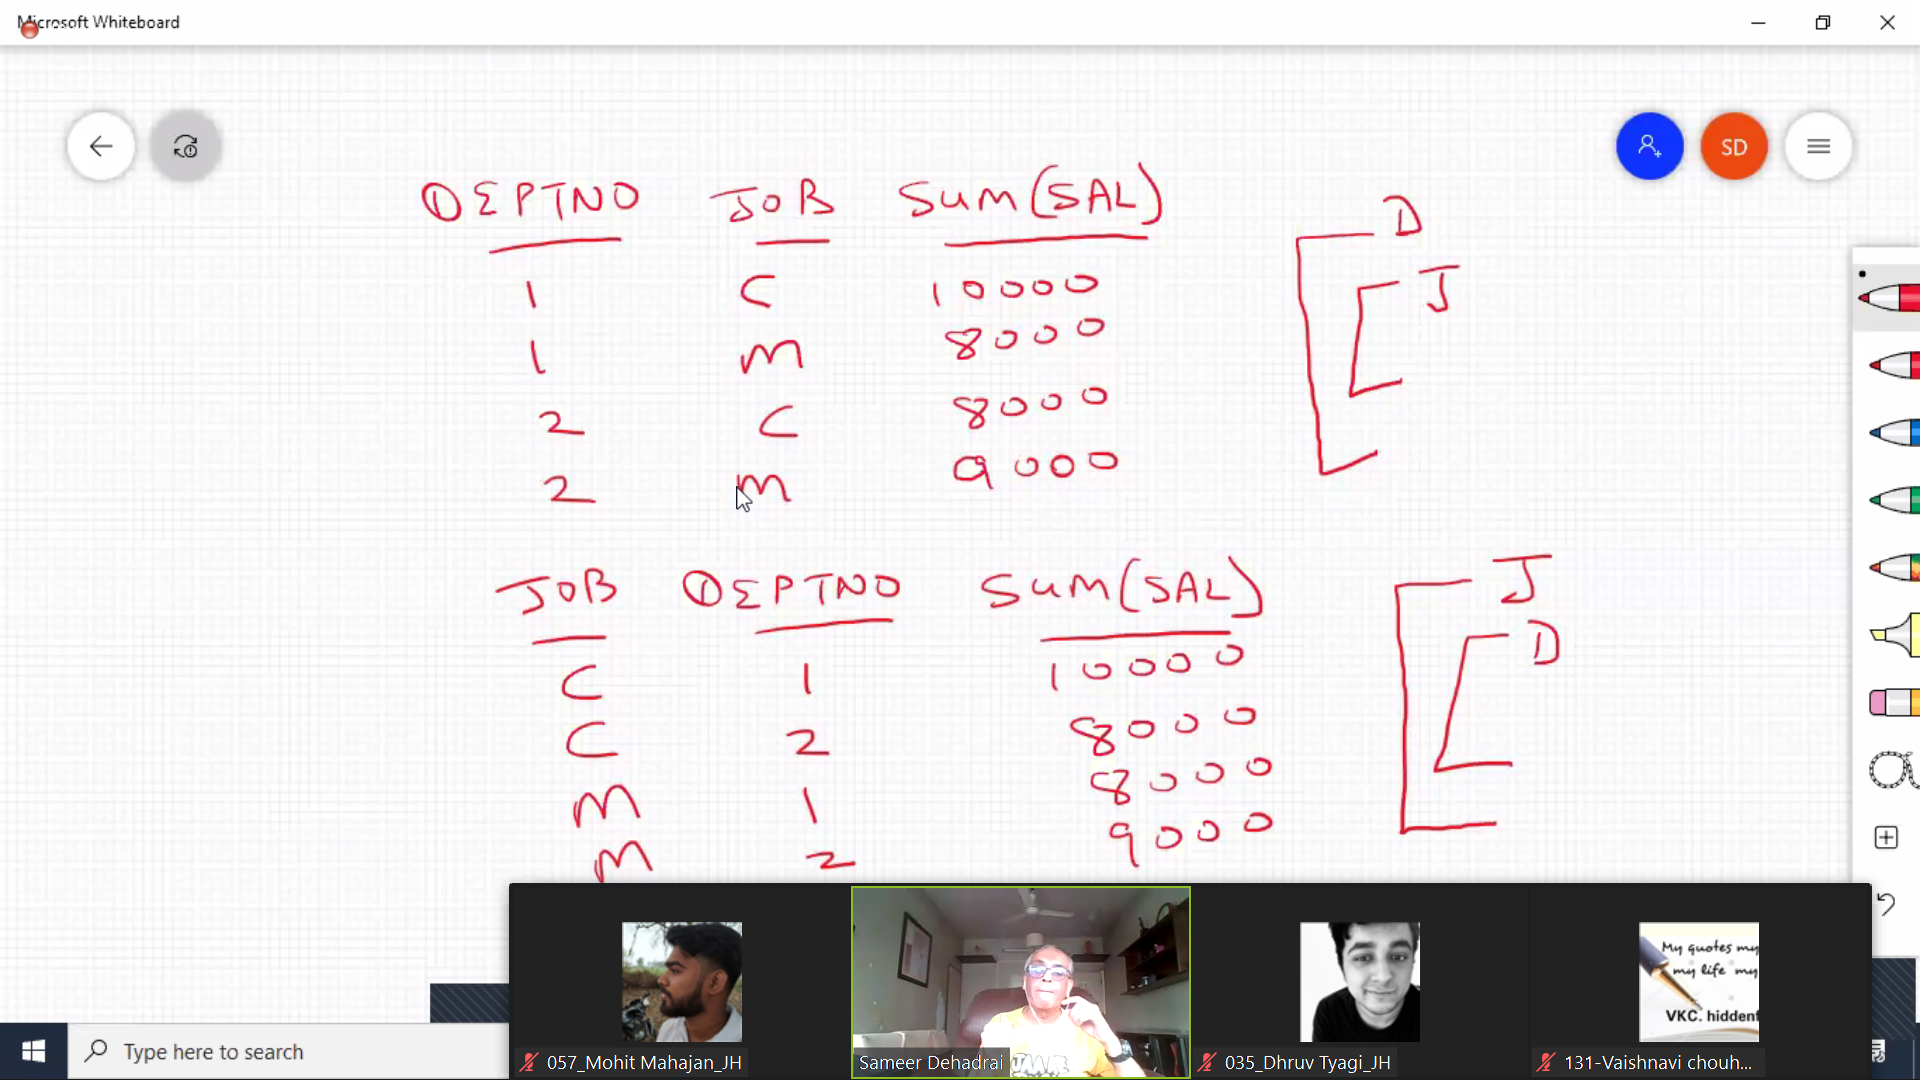 Microsoft Whiteboard
SD
DEPTNO JOB SUM(SAL)
1 C 10000
1 M 8000
2 C 8000
2 M 9000
D
J
JOB DEPTNO SUM(SAL)
C 1 10000
C 2 8000
M 1 8000
M 2 9000
J
D
My quotes my
my life my
VKC. hidden
Type here to search
057_Mohit Mahajan_JH
Sameer Dehadrai
035_Dhruv Tyagi_JH
131-Vaishnavi chouh...